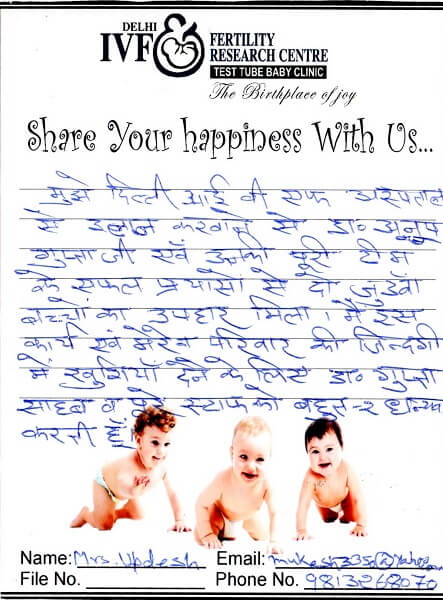 DELHI
IVF
FERTILITY
RESEARCH CENTRE
TEST TUBE BABY CLINIC
The Birthplace of joy
Share Your happiness With Us...
मुझे दिल्ली आई वी एफ अस्पताल
से इलाज करवाने से डा० अनुप
गुप्ता जी एवं उनकी पूरी टीम
के सफल प्रयासों से दो जुड़वाँ
बच्चों का उपहार मिला। मैं इस
कार्य एवं मेरे परिवार की जिन्दगी
में खुशियाँ देने के लिए डा० गुप्ता
साहब व पूरे स्टाफ को बहुत-२
करती हूँ।
Name: Mrs. Updesh Email:
File No. Phone No. 9813268070